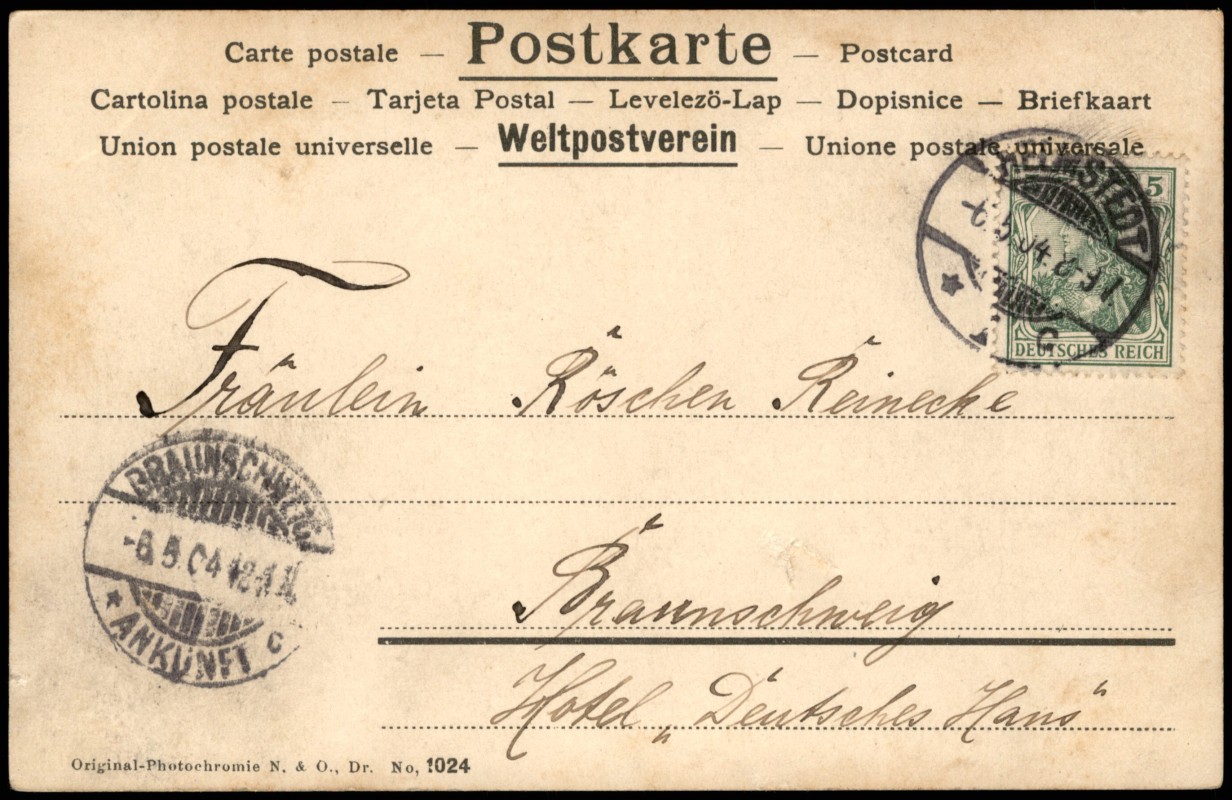 Carte postale — Postkarte — Postcard
Cartolina postale — Tarjeta Postal — Levelezö-Lap — Dopisnice — Briefkaart
Union postale universelle — Weltpostverein — Unione postale universale
HELMSTEDT
-6.5.04. 8-9 V
C
5
DEUTSCHES REICH
Fräulein Röschen Reinecke
BRAUNSCHWEIG
-6.5.04 12-1
ANKUNFT C
Braunschweig
Hotel „Deutsches Haus"
Original-Photochromie N. & O., Dr. No, 1024